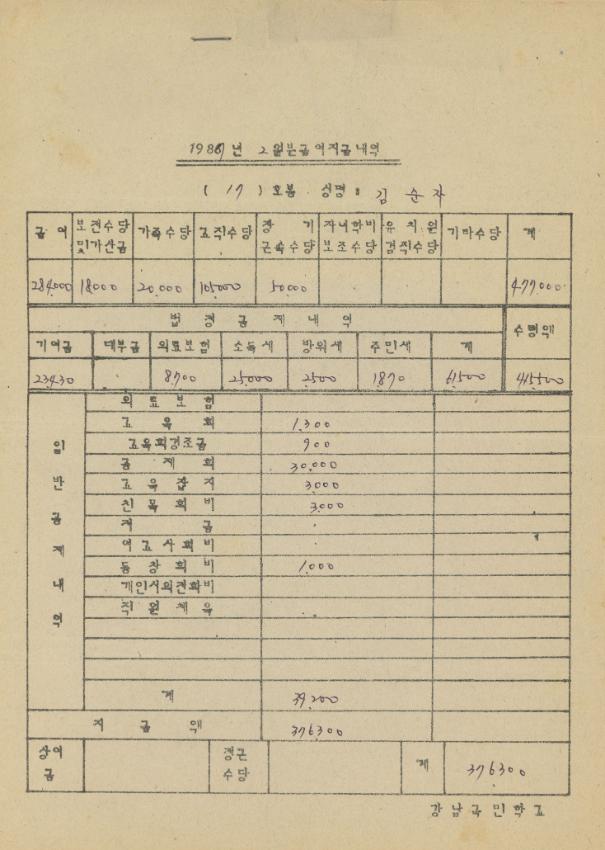 1987년 2월분급여지급내역
( 17 ) 호봉 성명 : 김 순 자
급 여 보건수당및가산금 가족수당 교직수당 장기근속수당 자녀학비보조수당 유치원겸직수당 기타수당 계
284,000 18000 20,000 105,000 50,000 477,000
법 정 공 제 내 역 수령액
기여금 대부금 의료보험 소득세 방위세 주민세 계
23430 8,700 25,000 2,500 1870 61,500 415,500
일 반 공 제 내 역
의 료 보 험
교 육 회 1,300
교육회경조금 900
공 제 회 30,000
교 육 잡 지 3000
친 목 회 비 3,000
저 금
여 교 사 회 비
동 창 회 비 1,000
개인시외전화비
직 원 체 육
계 39,200
지 급 액 376300
상여금 정근수당 계 376300
강 남 국 민 학 교